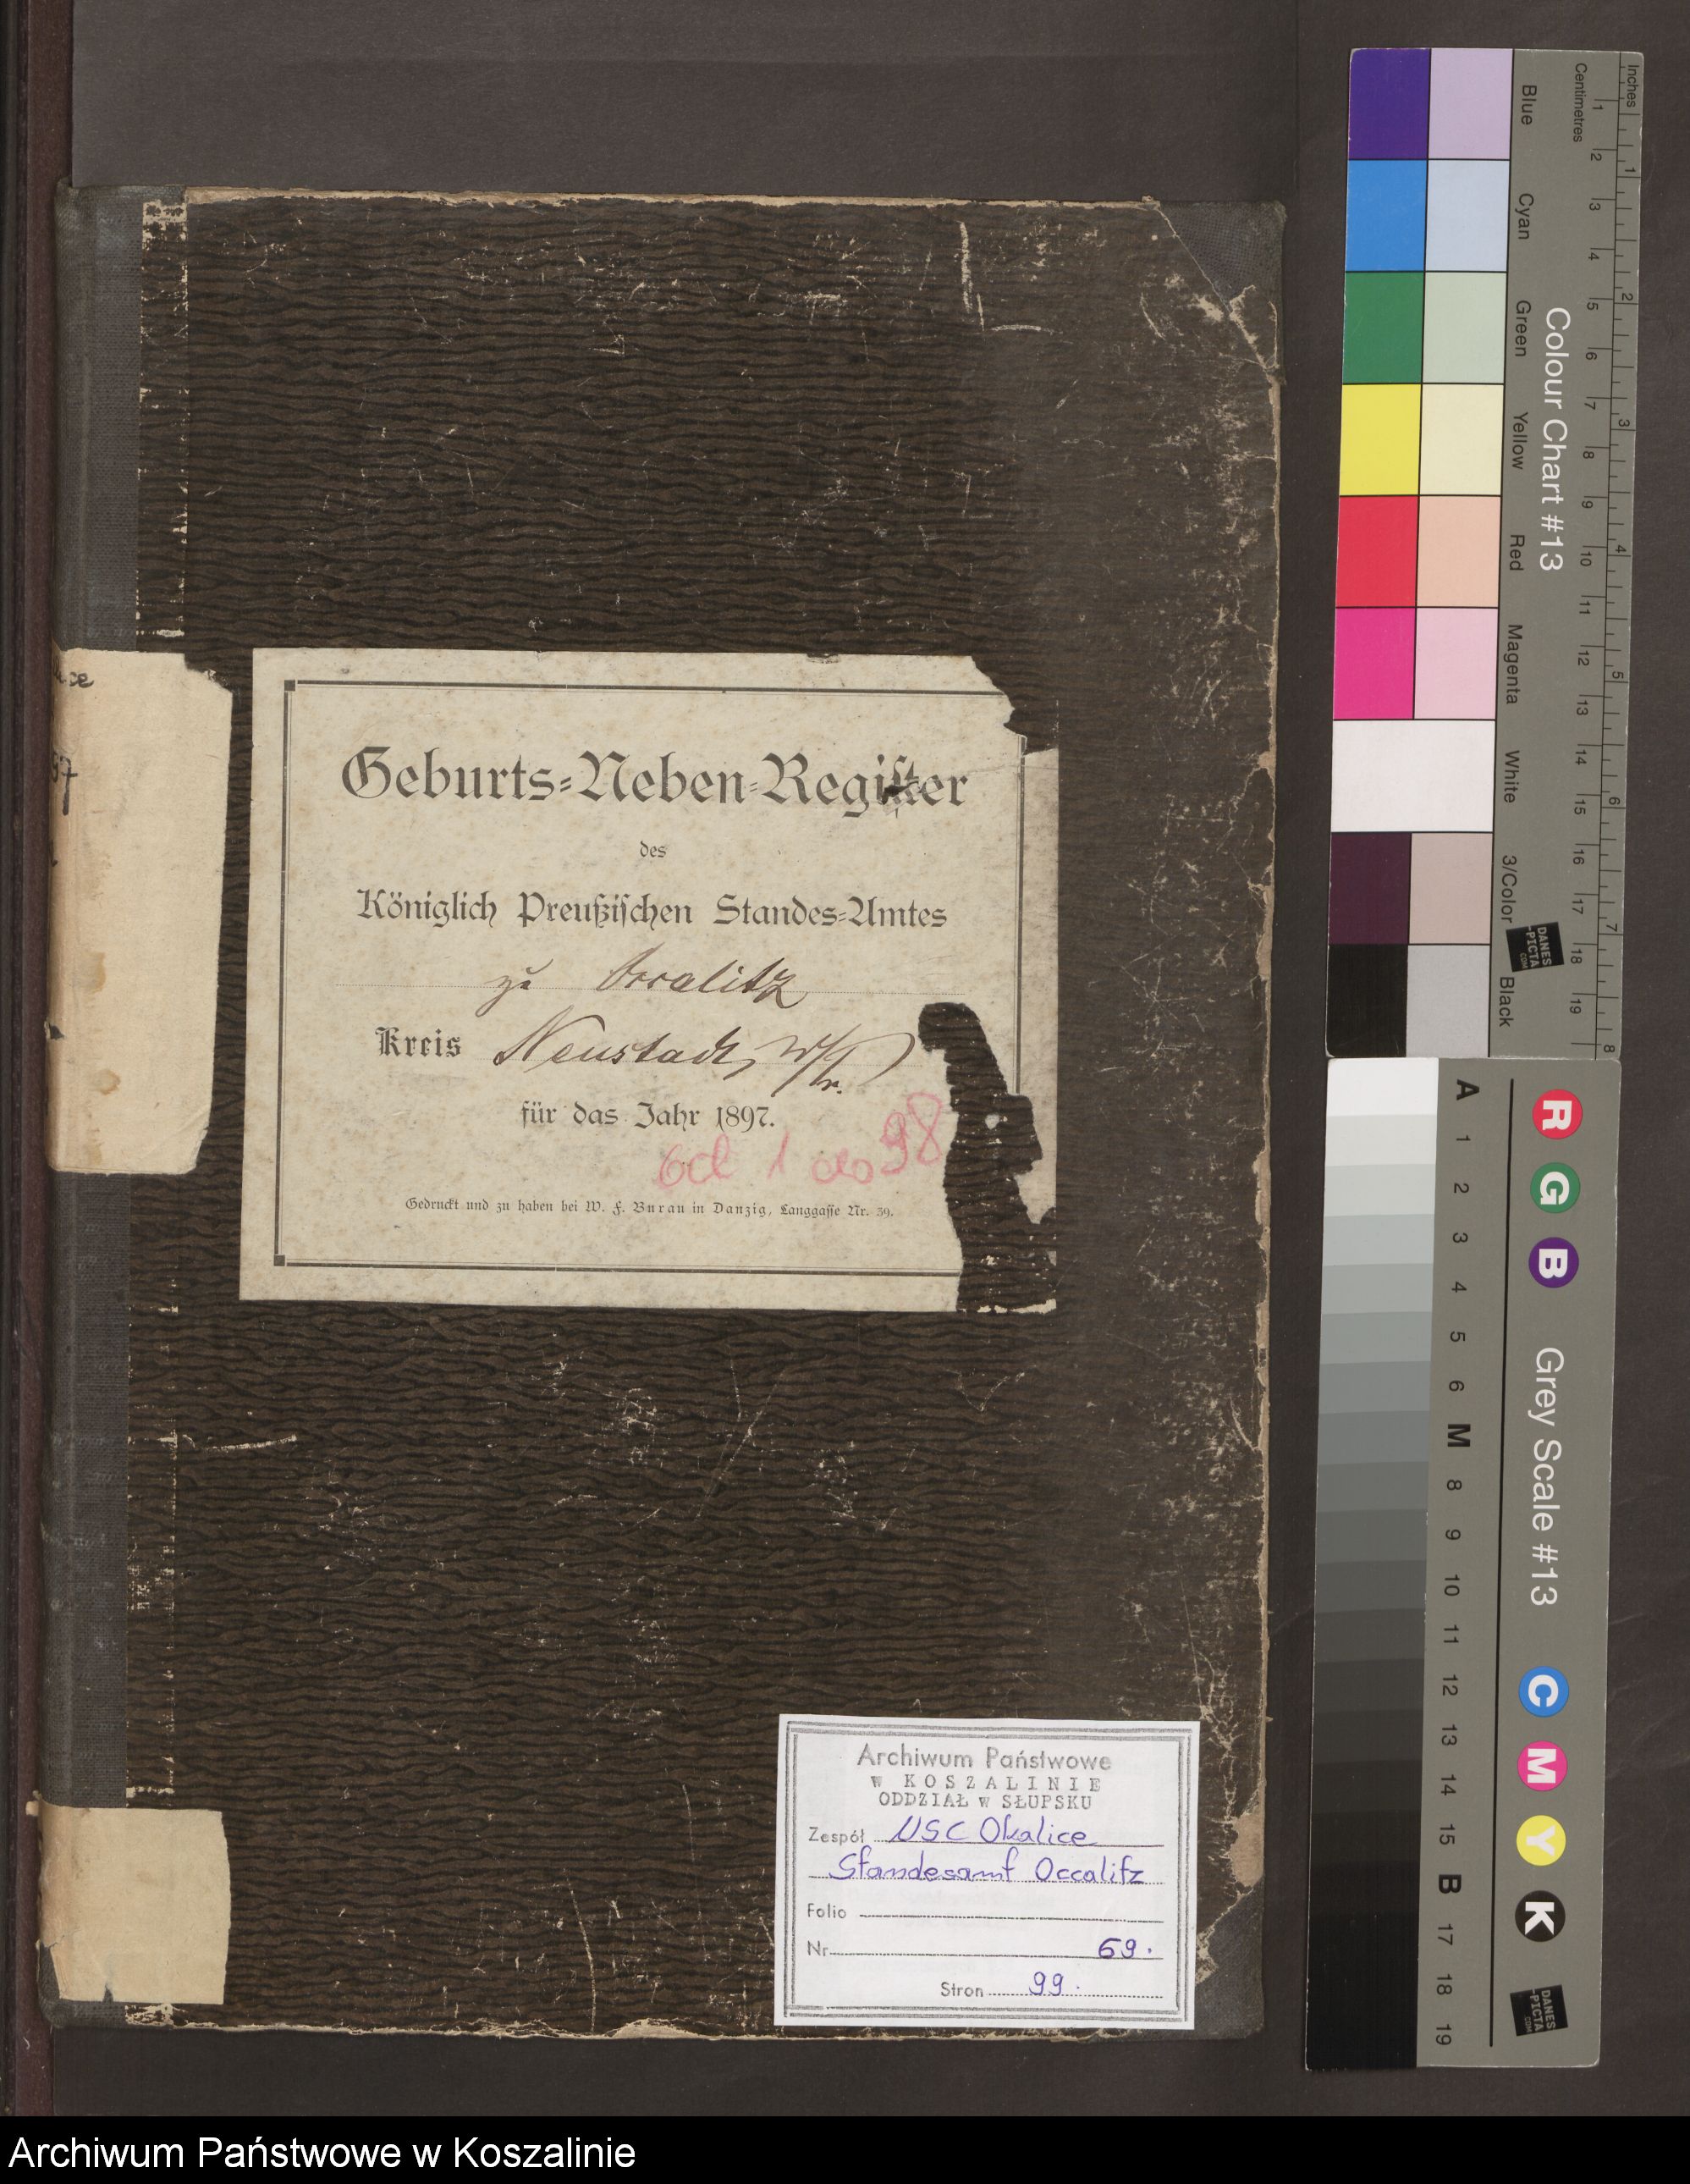 ice
97
Geburts=Neben=Register
des
Königlich Preußischen Standes=Amtes
zu Occalitz
Kreis Neustadt, W/Pr.
für das Jahr 1897.
od 1 do 98
Gedruckt und zu haben bei W. F. Burau in Danzig, Langgasse Nr. 39.
Archiwum Państwowe
w KOSZALINIE
ODDZIAŁ w SŁUPSKU
Zespół USC Okalice
Standesamt Occalitz
Folio
Nr 69.
Stron 99.
Inches 1 2 3 4 5 6 7 8
Centimetres 1 2 3 4 5 6 7 8 9 10 11 12 13 14 15 16 17 18 19
Colour Chart #13
Blue Cyan Green Yellow Red Magenta White 3/Color Black
DANES
-PICTA
.COM
R G B Grey Scale #13 C M Y K
A 1 2 3 4 5 6 M 8 9 10 11 12 13 14 15 B 17 18 19
DANES
-PICTA
.COM
Archiwum Państwowe w Koszalinie